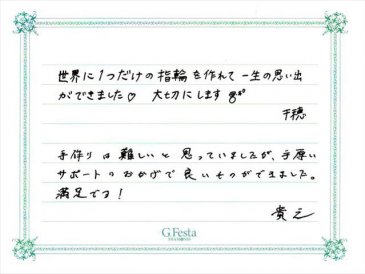 世界に1つだけの指輪を作れて一生の思い出
ができました♡ 大切にします
千穂
手作りは難しいと思っていましたが、手厚い
サポートのおかげで良いものができました。
満足です！
貴之
G.Festa
DIAMOND